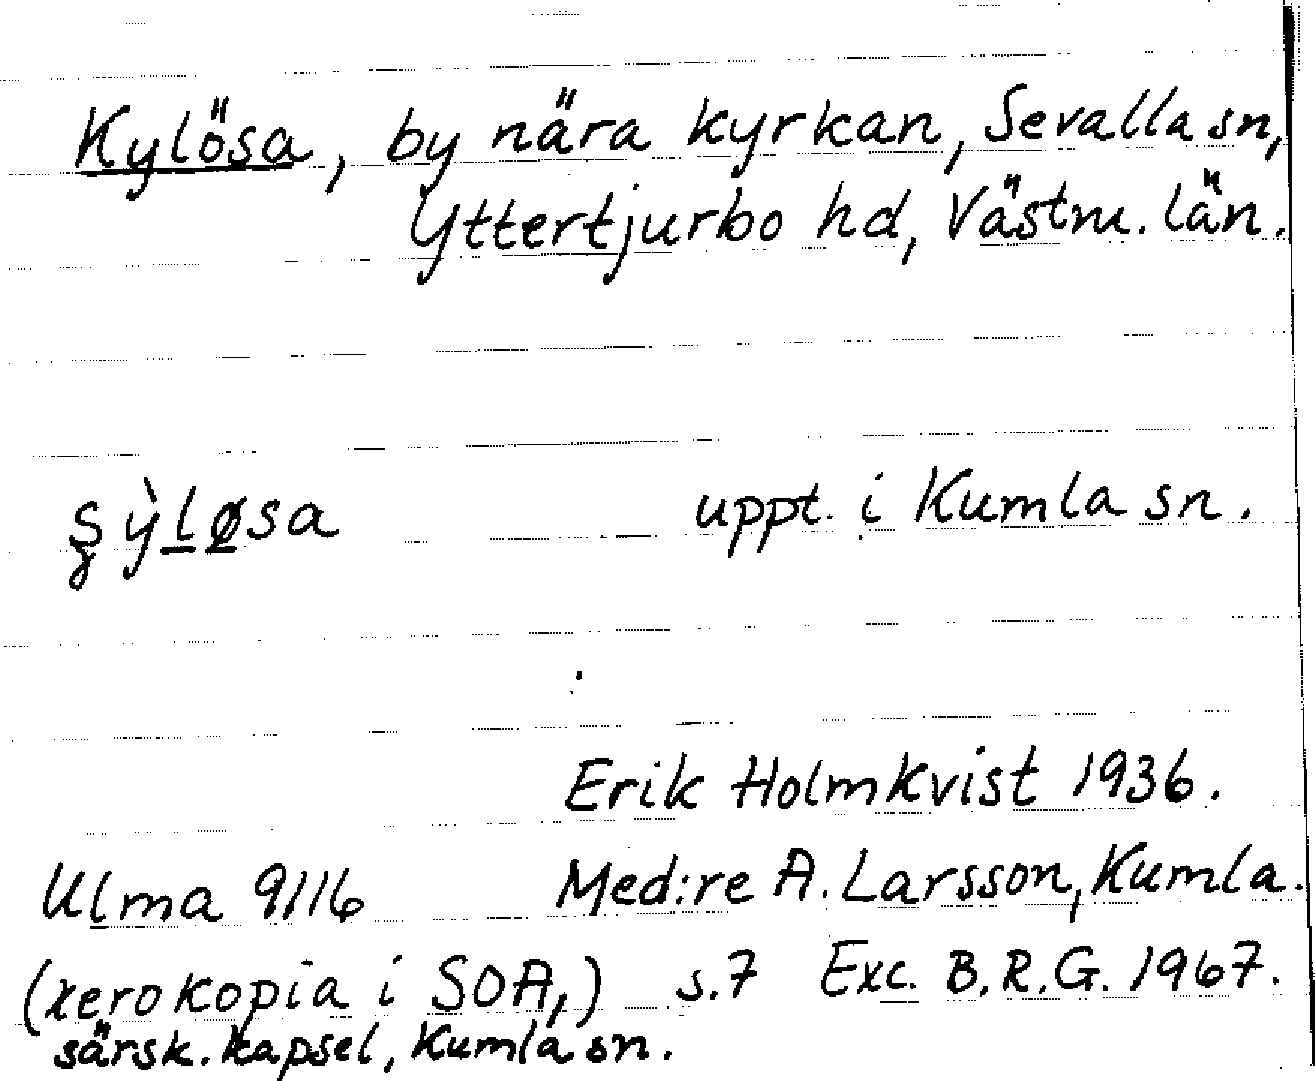 Kylösa, by nära kyrkan, Sevalla sn,
Yttertjurbo hd, Västm. län.
uppt. i Kumla sn.
Erik Holmkvist 1936.
Ulma 9116 Med:re A. Larsson, Kumla.
(xerokopia i SOA,) s.7 Exc. B.R.G. 1967.
särsk. kapsel, Kumla sn.